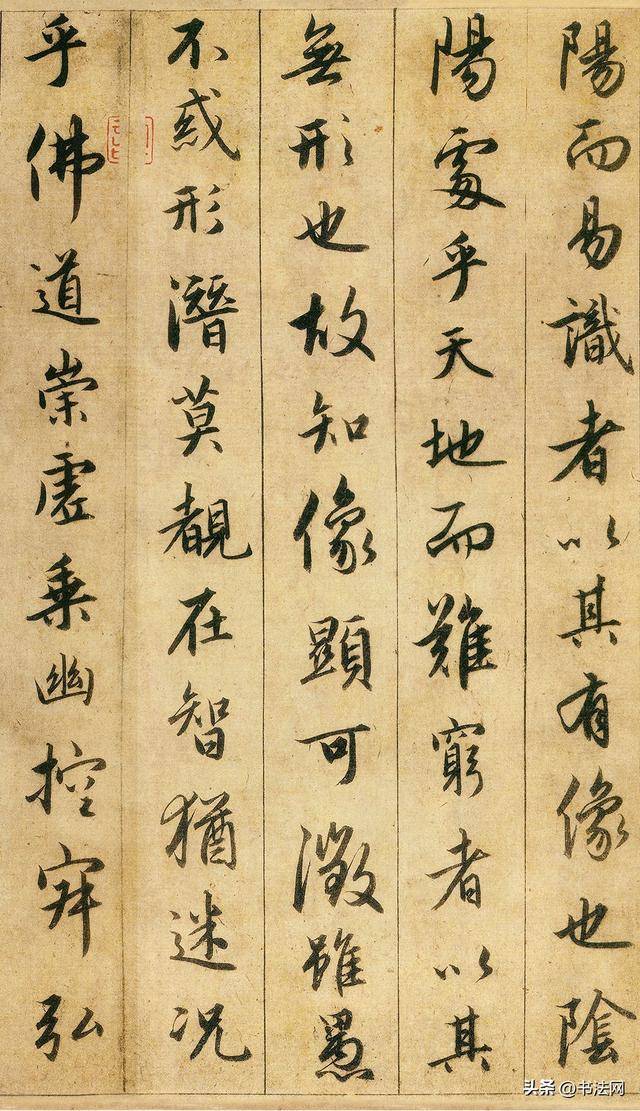 陽而易識者以其有像也陰
陽處乎天地而難窮者以其
無形也故知像顯可徵雖愚
不惑形潛莫覩在智猶迷况
乎佛道崇虛乗幽控寂弘
头条 @书法网